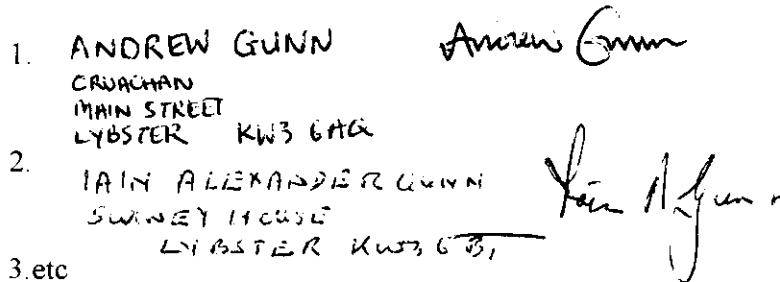 1. ANDREW GUNN Andrew Gunn
CRUACHAN
MAIN STREET
LYBSTER KW3 6AG
2.
IAIN ALEXANDER GUNN Iain A. Gunn
SWINEY HOUSE
LYBSTER KW3 6
3.etc